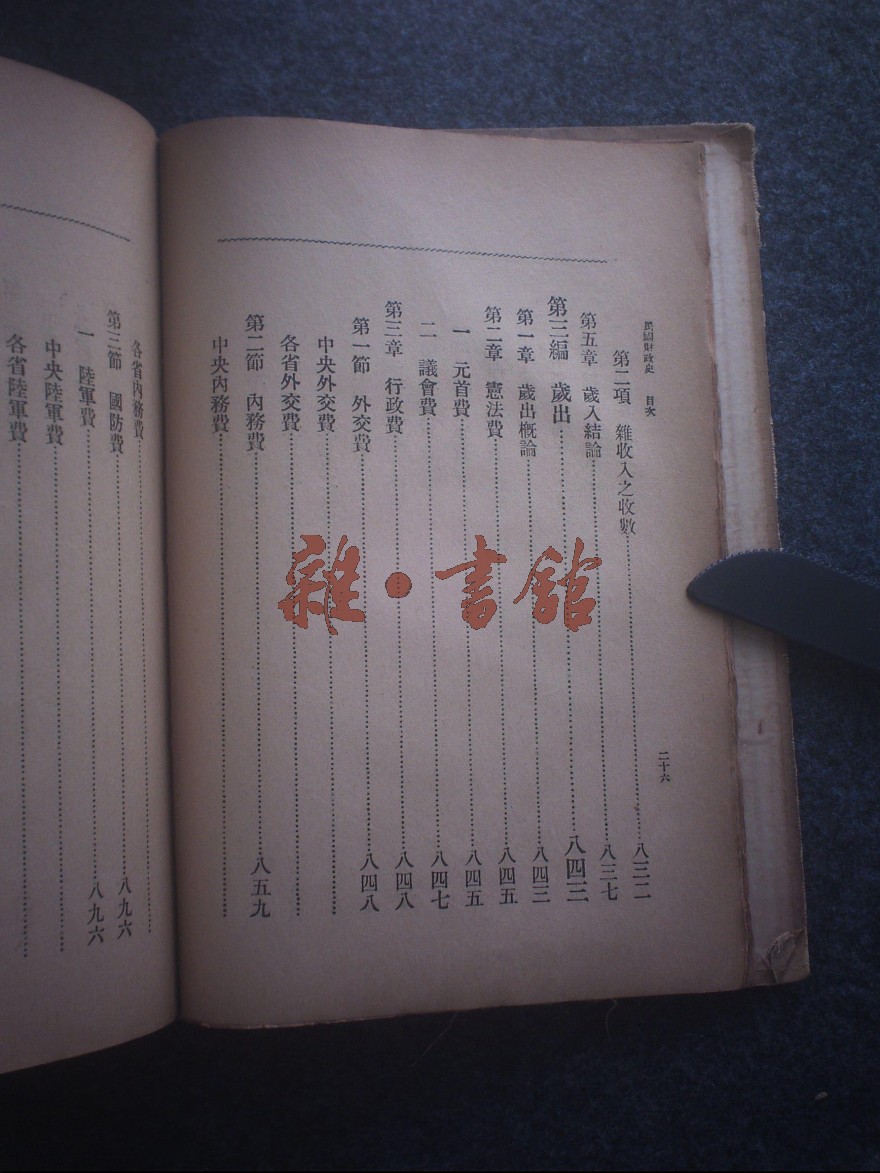 民國財政史　目次
二十六
第二項　雜收入之收數……八三二
第五章　歲入結論……八三七
第三編　歲出……八四三
第一章　歲出概論……八四三
第二章　憲法費……八四五
一　元首費……八四五
二　議會費……八四七
第三章　行政費……八四八
第一節　外交費……八四八
中央外交費……
各省外交費……
第二節　內務費……八五九
中央內務費……
各省內務費……
第三節　國防費……八九六
一　陸軍費……八九六
中央陸軍費……
各省陸軍費……
雜·書館